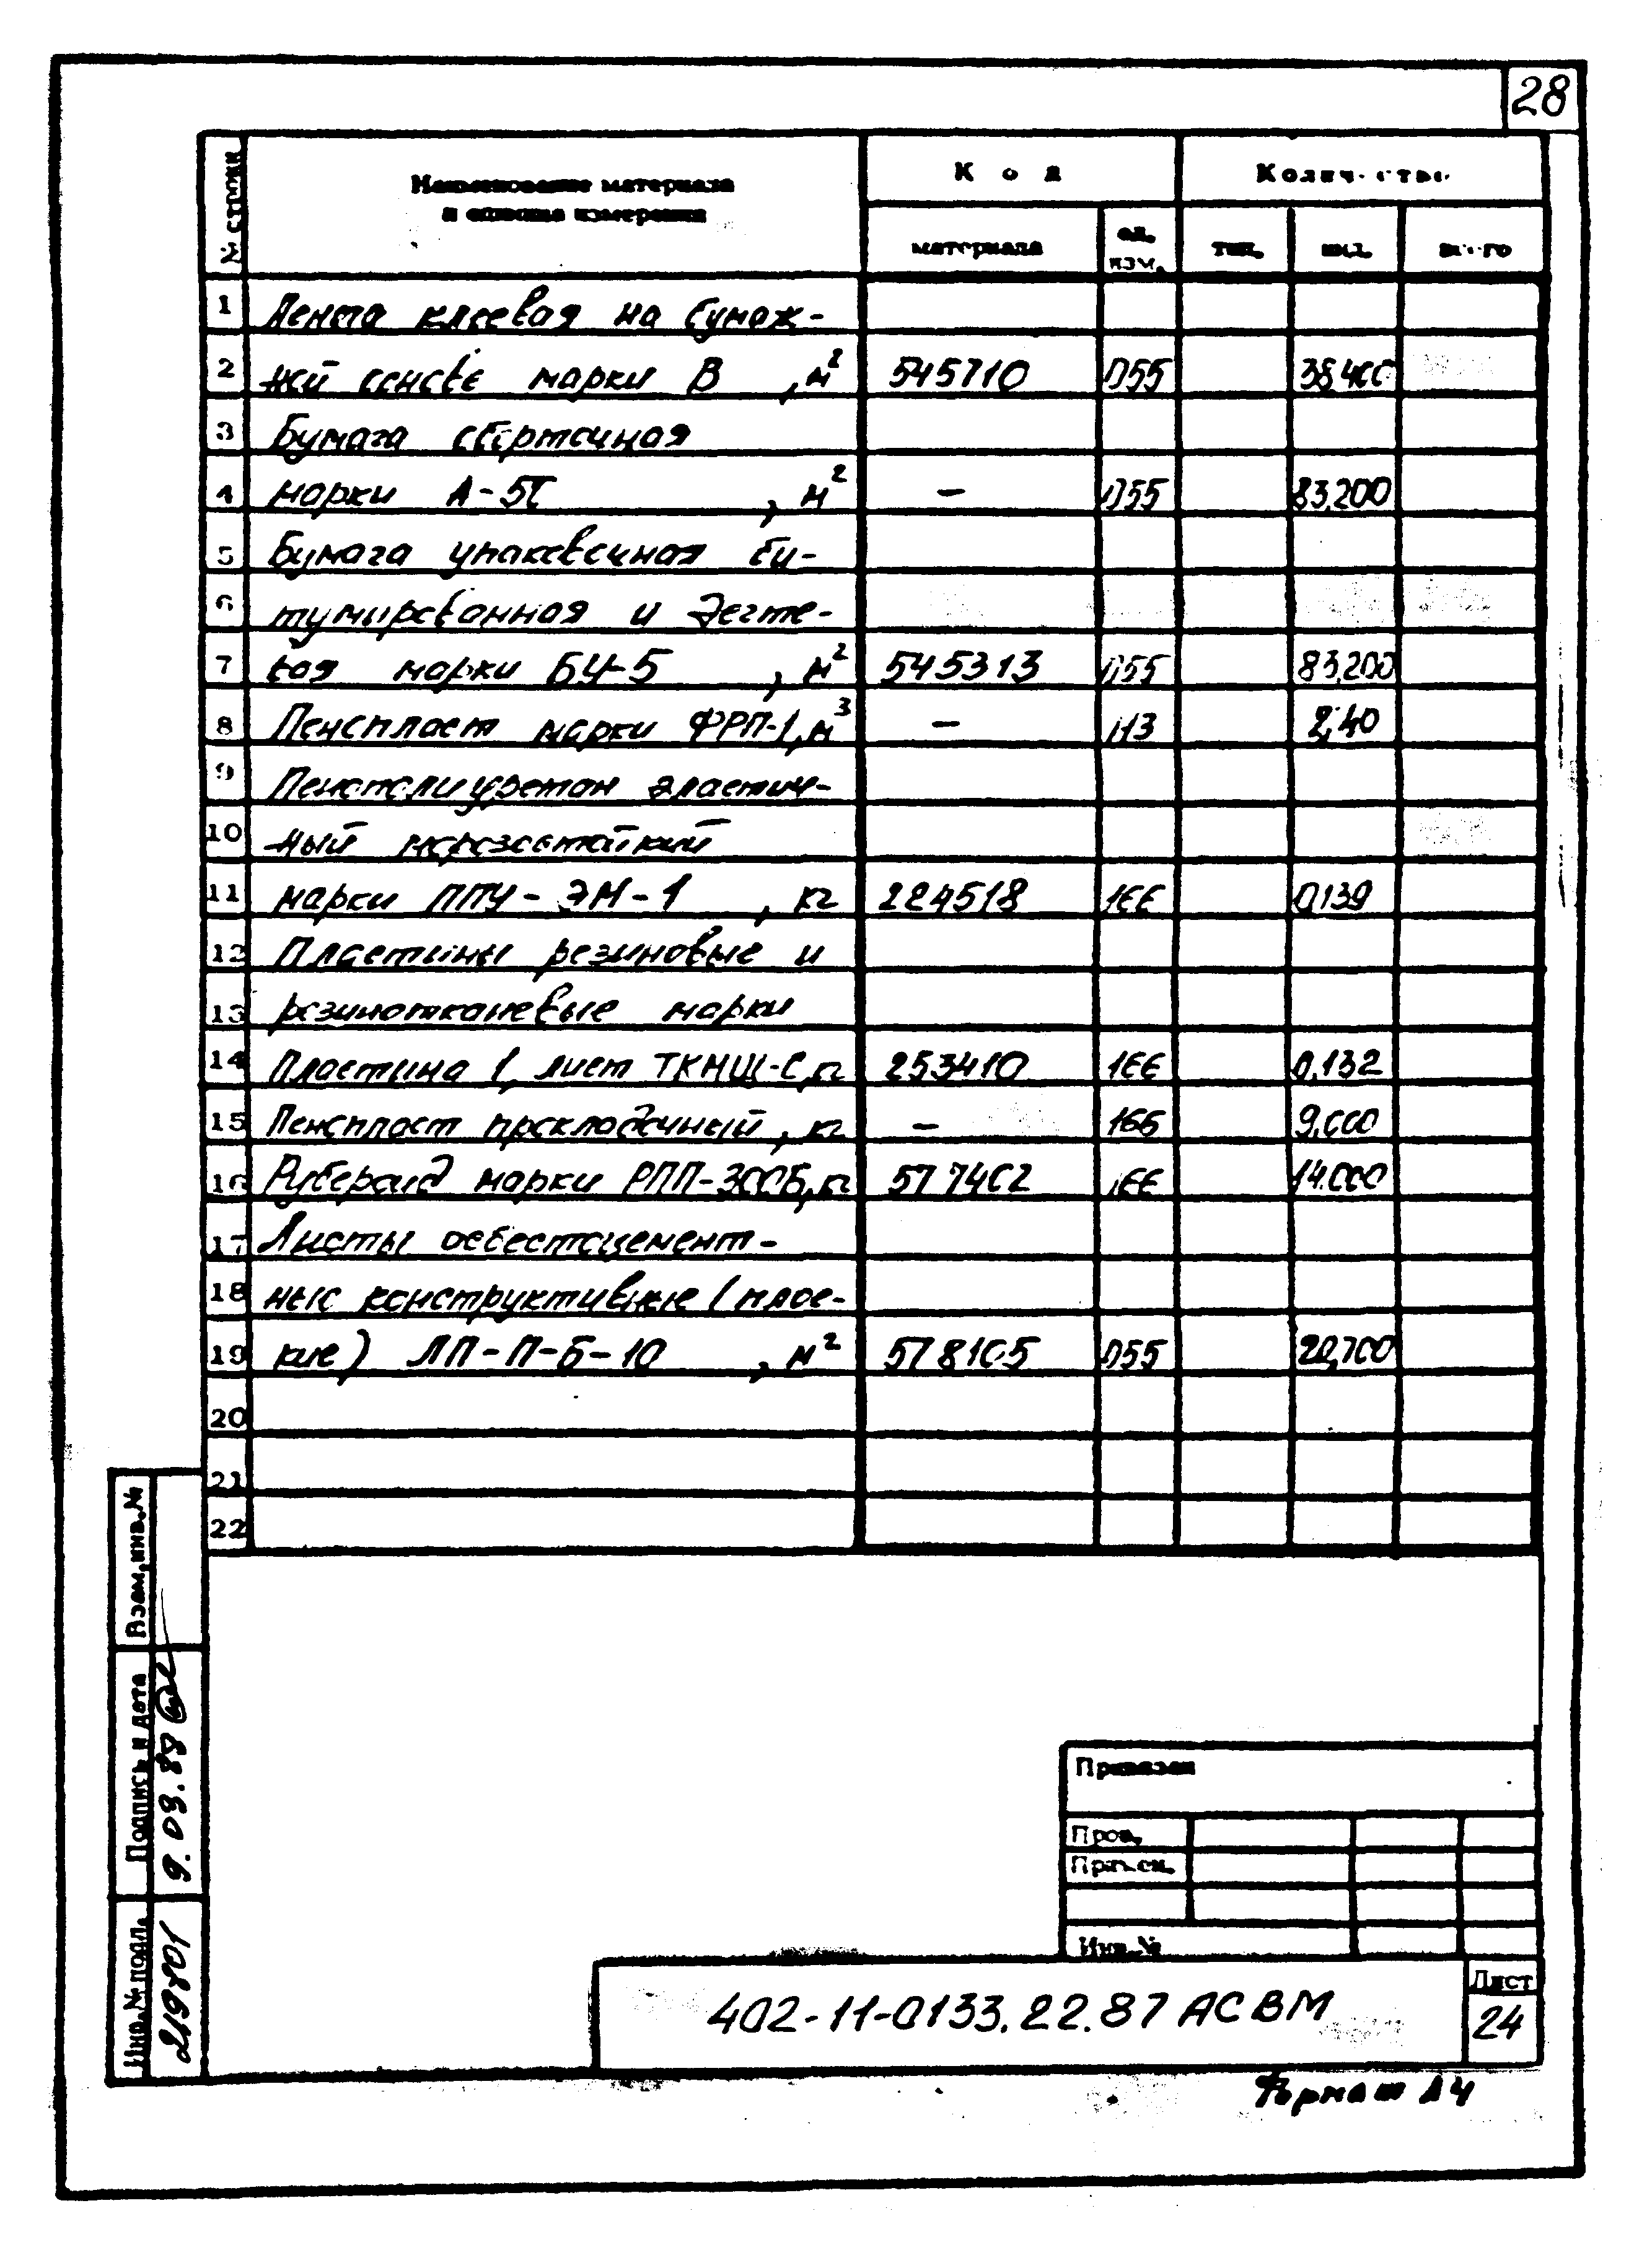 28
№ строки
Наименование материала
и единица измерения
Код
Количество
материала
ед. изм.
тип.
инд.
всего
1 Лента клеевая на бумаж-
2 ной основе марки В , м² 545710 055 38,400
3 Бумага оберточная
4 марки А-50 , м² – 055 83,200
5 Бумага упаковочная би-
6 тумированная и дегте-
7 вая марки БУ-5 , м² 545313 055 83,200
8 Пенопласт марки ФРП-1, м³ – 113 2,40
9 Пенополиуретан эластич-
10 ный морозостойкий
11 марки ППУ-ЭМ-1 , кг 224518 166 0,139
12 Пластины резиновые и
13 резинотканевые марки
14 Пластина 1, лист ТКМЩ-С, кг 253410 166 0,132
15 Пенопласт прокладочный , кг – 166 9,000
16 Рубероид марки РПП-300Б, кг 577402 166 14,000
17 Листы асбестоцемент-
18 ные конструктивные (плос-
19 кие) ЛП-П-Б-10 , м² 578105 055 20,700
20
21
22
Взам. инв. №
Подпись и дата
9.03.88
Инв. № подл.
Привязан
Пров.
Инв. №
402-11-0133.22.87 АСВМ
Лист
24
Формат А4